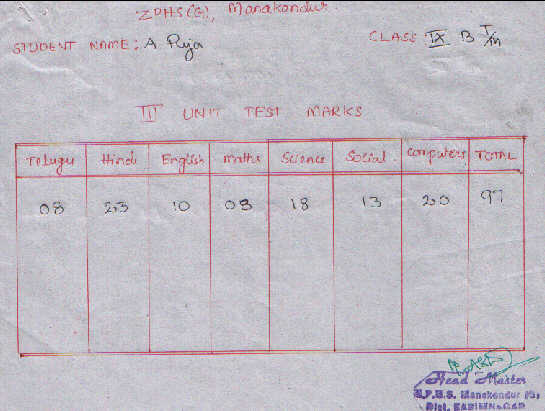 ZPHS(G), Manakondur.
STUDENT NAME: A Puja CLASS IX B T/m
III UNIT TEST MARKS
Telugu Hindi English maths Science Social. Computers TOTAL
08 23 10 03 18 13 20 97
Head Master
Z.P.H.S. Manakondur (G)
Dist. KARIMNAGAR